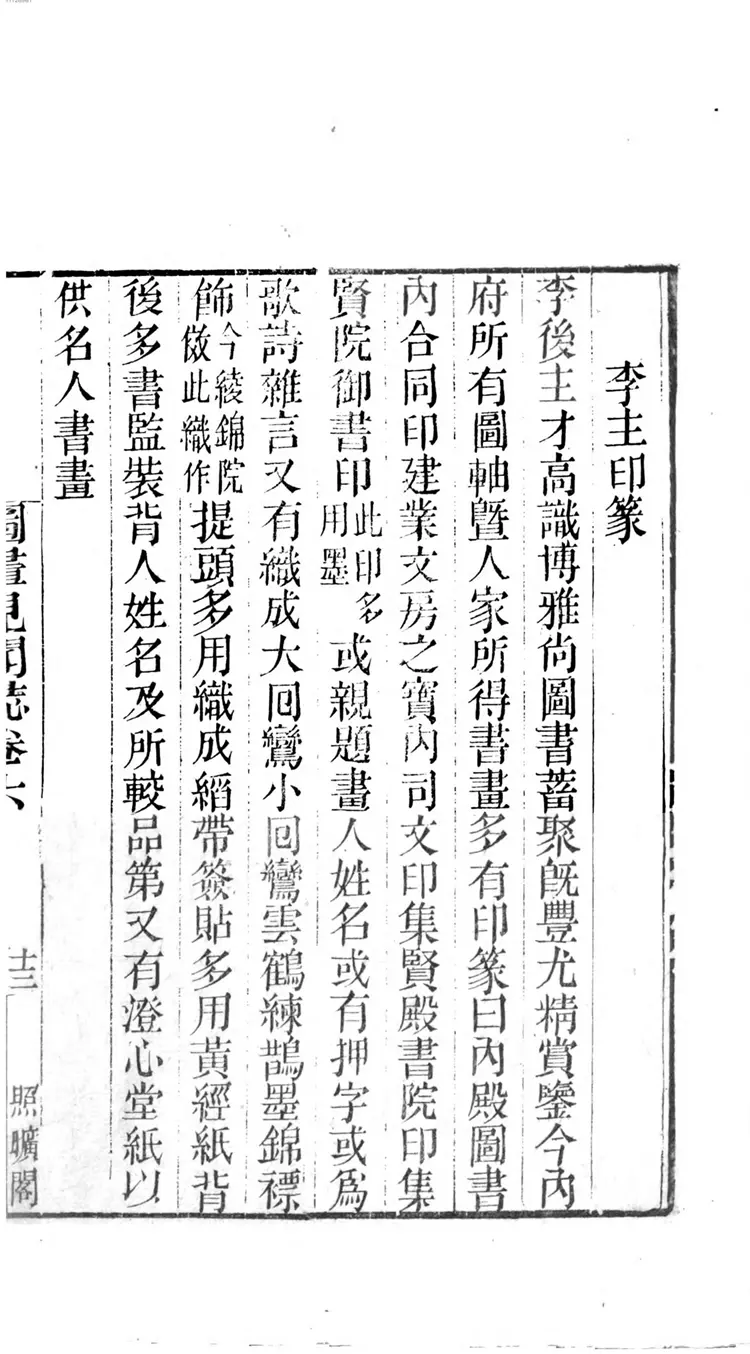 李主印篆
李後主才高識博雅尚圖書蓄聚旣豐尤精賞鑒今內
府所有圖軸曁人家所得書畫多有印篆曰內殿圖書
內合同印建業文房之寶內司文印集賢殿書院印集
賢院御書印此印多用墨或親題畫人姓名或有押字或爲
歌詩雜言又有織成大囘鸞小囘鸞雲鶴練鵲墨錦褾
飾今綾錦院倣此織作提頭多用織成縚帶簽貼多用黃經紙背
後多書監裝背人姓名及所較品第又有澄心堂紙以
供名人書畫
圖畫見聞誌卷六
十三
照曠閣